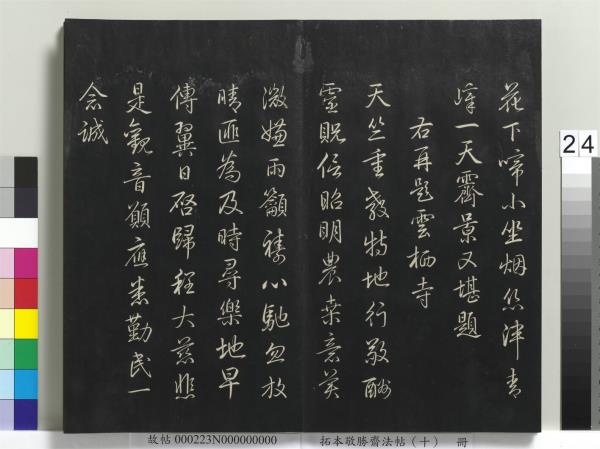 花下啼小坐烟津青
峰一天霽景又堪題
右再題雲栖寺
天竺重教特地行敬酬
靈貺信昭明農桑意
微嫌雨籲禱心馳忽放
晴匪為及時尋樂地早
傳翼日啓歸程大慈悲
是觀音願應悉勤民一
念誠
24
故帖 000223N000000000 拓本敬勝齋法帖（十） 冊